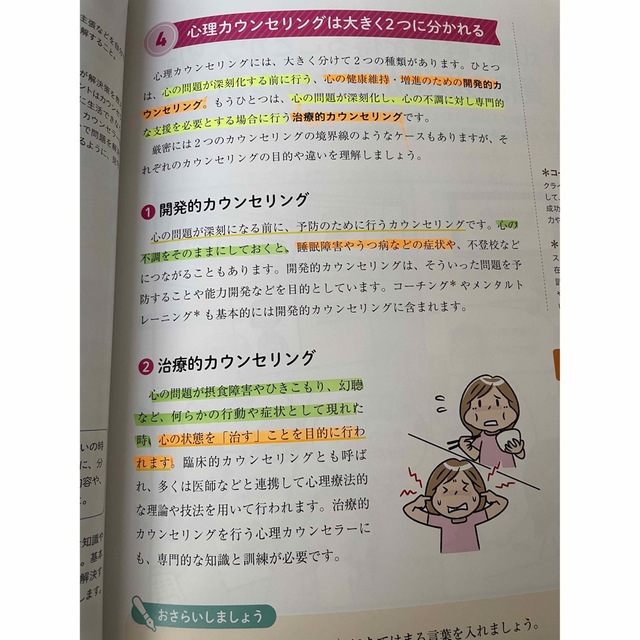 4 心理カウンセリングは大きく2つに分かれる
心理カウンセリングには、大きく分けて2つの種類があります。ひとつ
は、心の問題が深刻化する前に行う、心の健康維持・増進のための開発的カ
ウンセリング。もうひとつは、心の問題が深刻化し、心の不調に対し専門的
な支援を必要とする場合に行う治療的カウンセリングです。
厳密には2つのカウンセリングの境界線のようなケースもありますが、そ
れぞれのカウンセリングの目的や違いを理解しましょう。
1 開発的カウンセリング
心の問題が深刻になる前に、予防のために行うカウンセリングです。心の
不調をそのままにしておくと、睡眠障害やうつ病などの症状や、不登校など
につながることもあります。開発的カウンセリングは、そういった問題を予
防することや能力開発などを目的としています。コーチング*やメンタルト
レーニング*も基本的には開発的カウンセリングに含まれます。
2 治療的カウンセリング
心の問題が摂食障害やひきこもり、幻聴
など、何らかの行動や症状として現れた
時、心の状態を「治す」ことを目的に行わ
れます。臨床的カウンセリングとも呼ば
れ、多くは医師などと連携して心理療法的
な理論や技法を用いて行われます。治療的
カウンセリングを行う心理カウンセラーに
も、専門的な知識と訓練が必要です。
おさらいしましょう
てはまる言葉を入れましょう。